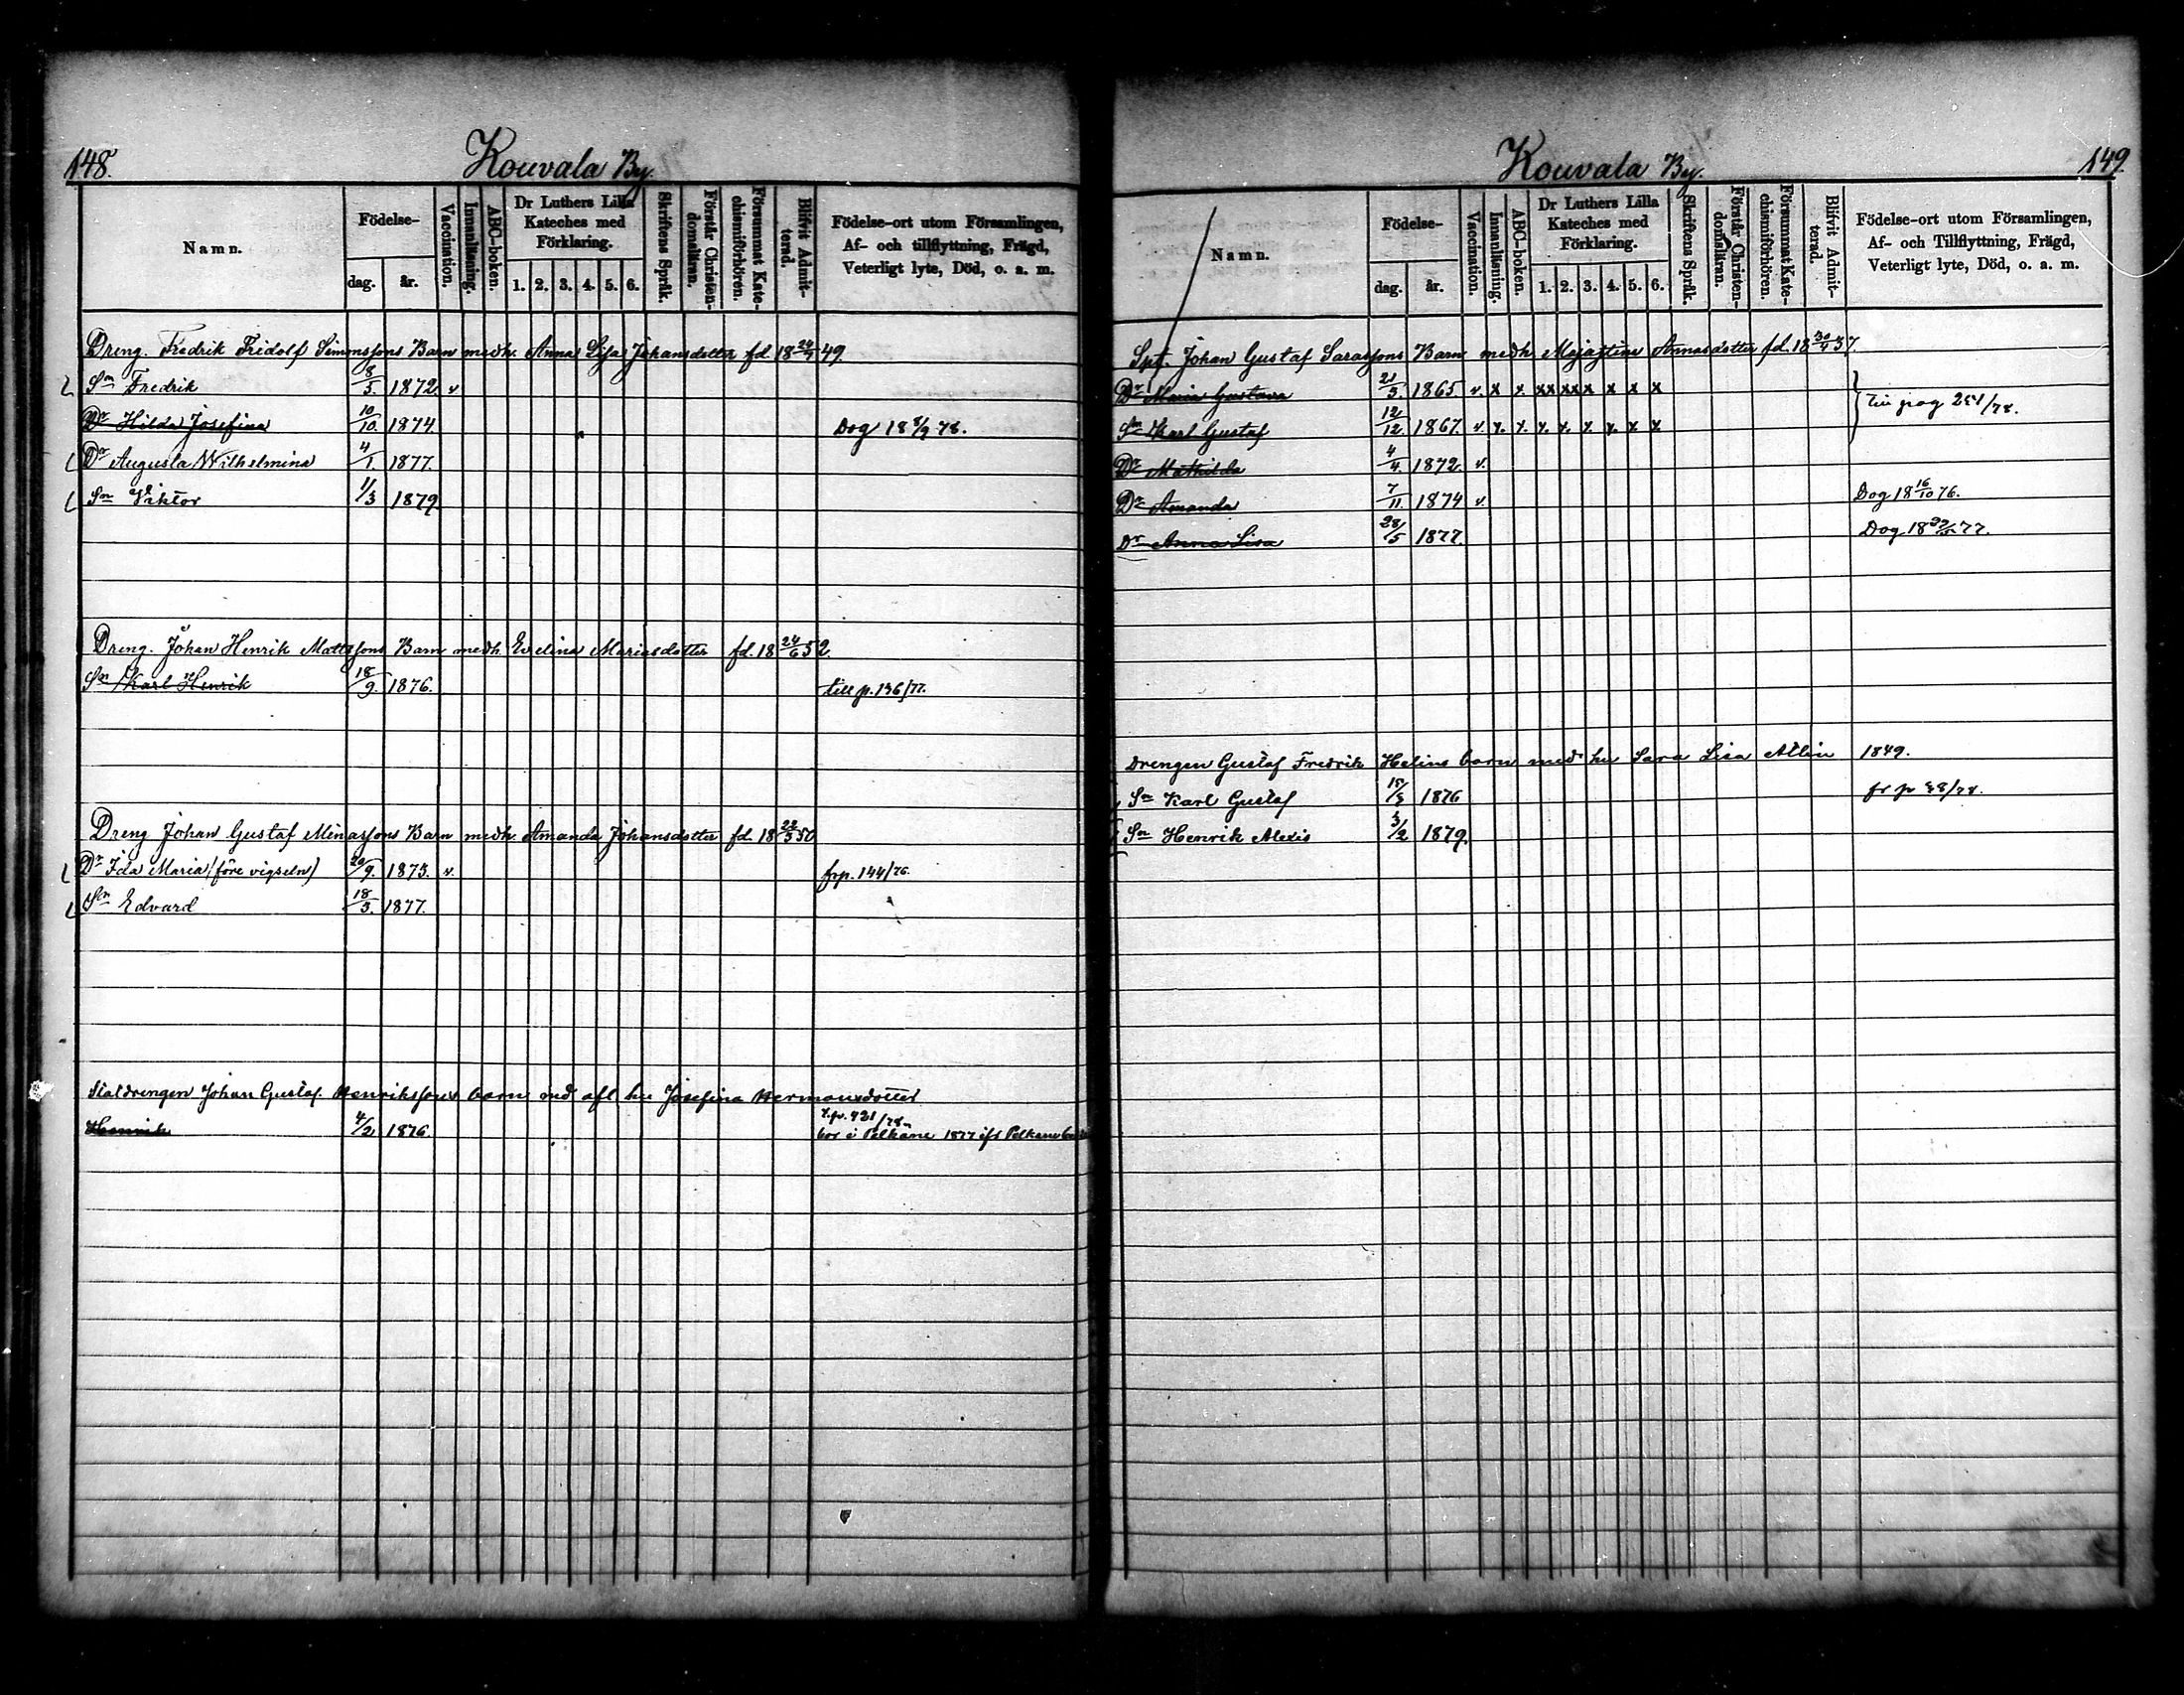 148.
Kouvala By.
Namn.
Födelse-
dag.
år.
Vaccination.
Innanläsning.
ABC-boken.
Dr Luthers Lilla Kateches med Förklaring.
1. 2. 3. 4. 5. 6.
Skriftens Språk.
Förstår Christendomsläran.
Försummat Katechismiförhören.
Blifvit Admitterad.
Födelse-ort utom Församlingen,
Af- och tillflyttning, Frägd,
Veterligt lyte, Död, o. a. m.
Dreng. Fredrik Fridolf Simonssons Barn med h. Anna Lisa Johansdotter fd. 18 24/7 49.
Sn Fredrik 8/5. 1872. v
Dr Hilda Josefina 10/10. 1874. Dog 18 8/9 78.
Dr Augusta Wilhelmina 4/1. 1877.
Sn Viktor 11/3 1879.
Dreng. Johan Henrik Mattssons Barn med h. Evelina Mariasdotter fd. 18 24/6 52
Sn Karl Henrik 18/9. 1876. till p. 136/77.
Dreng Johan Gustaf Minassons Barn med h. Amanda Johansdotter fd. 18 22/3 50
Dr Ida Maria (före vigseln) 29/9. 1873. v. frp. 144/76.
Sn Edvard 18/3. 1877.
Statdrengen Johan Gustaf Henrikssons barn med afl hu Josefina Hermansdotter
Henrik 4/2 1876. t.p. 421/78
bor i Pelkäne 1877
149.
Kouvala By.
Namn.
Födelse-
dag.
år.
Vaccination.
Innanläsning.
ABC-boken.
Dr Luthers Lilla Kateches med Förklaring.
1. 2. 3. 4. 5. 6.
Skriftens Språk.
Förstår Christendomsläran.
Försummat Katechismiförhören.
Blifvit Admitterad.
Födelse-ort utom Församlingen,
Af- och Tillflyttning, Frägd,
Veterligt lyte, Död, o. a. m.
Spt. Johan Gustaf Sarassons Barn med h. Majastina Annasdotter fd. 18 30/4 37.
Dr Maria Gustava 21/3. 1865. v. x x. xx xxx x x x
Sn Karl Gustaf 12/12. 1867. v. x. x. x. x. x x. x x till pag 254/78.
Dr Mathilda 4/4. 1872. v.
Dr Amanda 7/11. 1874 v. Dog 18 16/10 76.
Dr Anna Lisa 28/5 1877. Dog 18 77.
Drengen Gustaf Fredrik Helins barn med hu Sara Lisa Allin 1849.
Sn Karl Gustaf 18/3 1876 fr p 38/78.
Sn Henrik Alexis 3/2 1879.